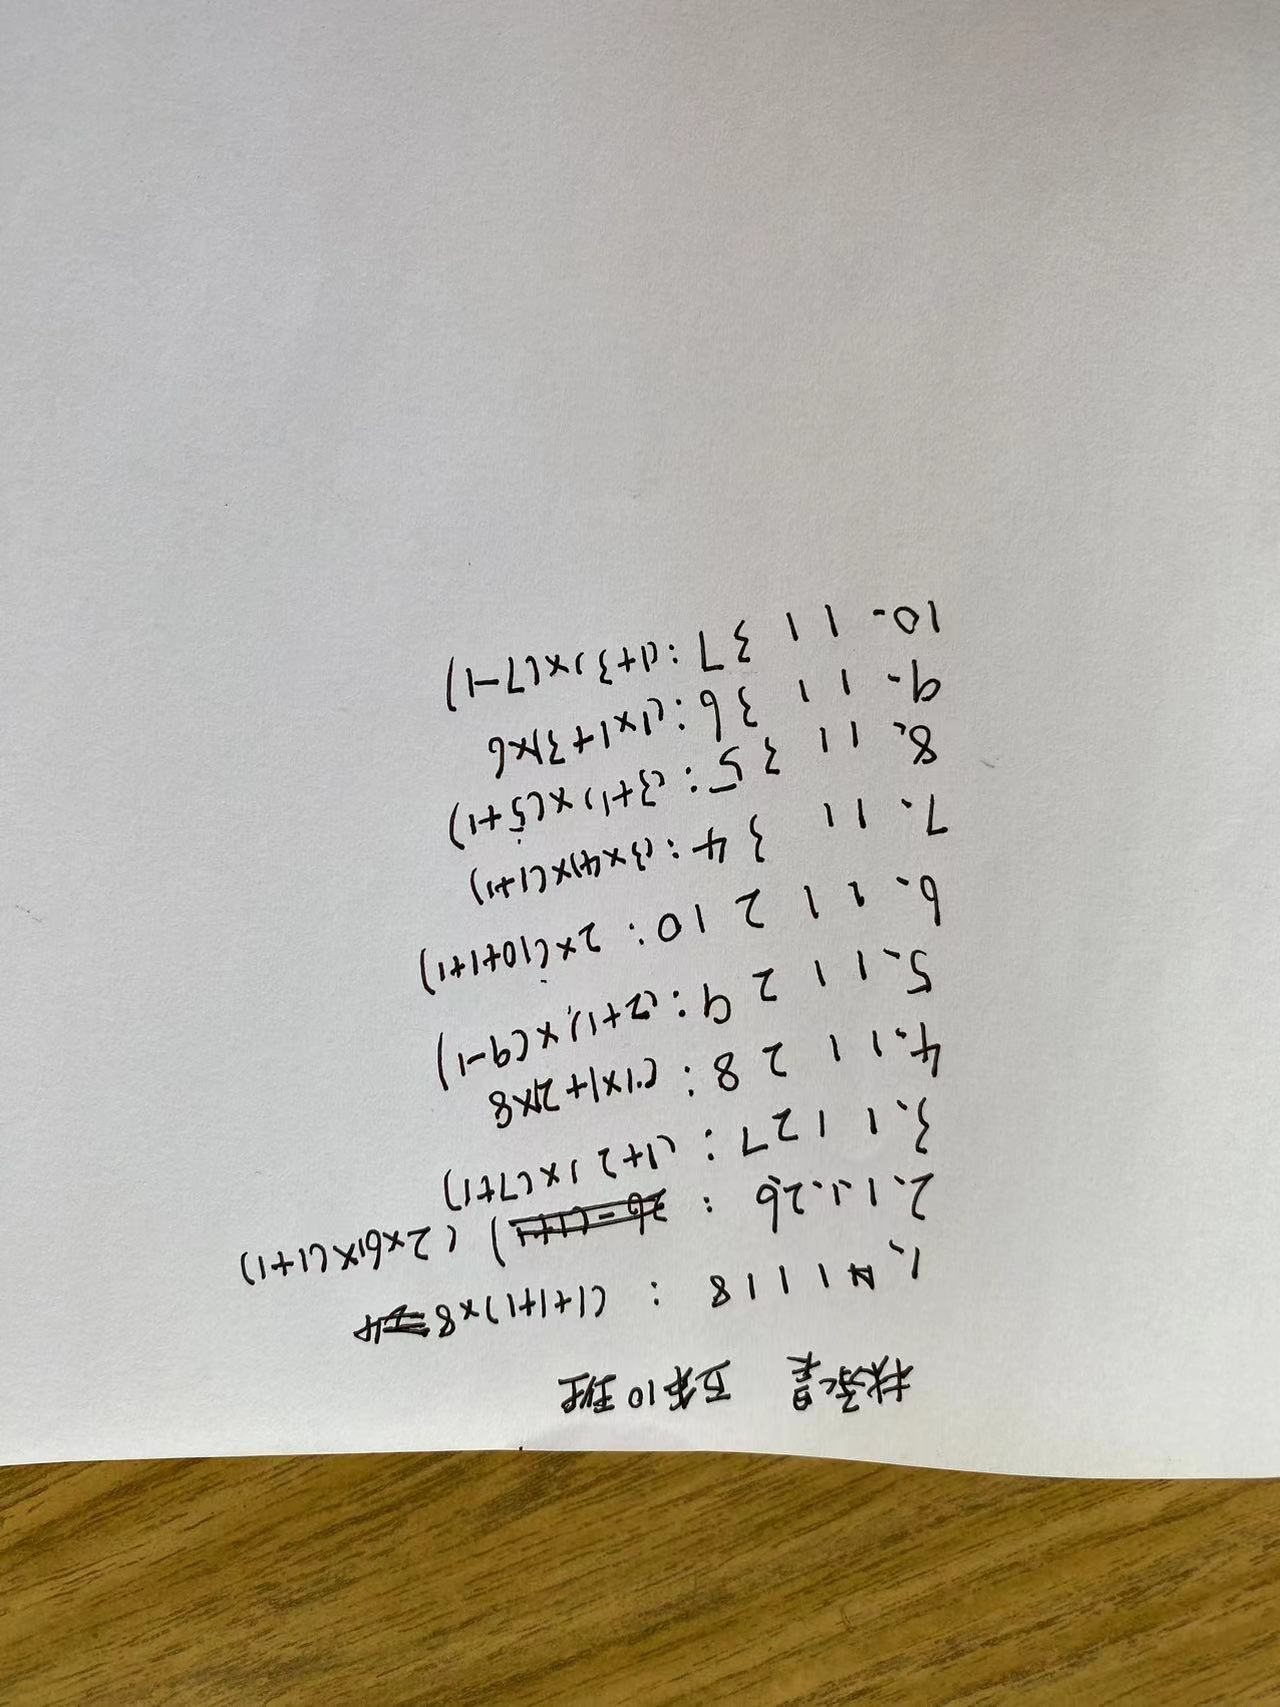 五年10班
1. 1 1 1 8 : (1+1+1)×8
2. 1 1 2 6 : (2×6)×(1+1)
3. 1 1 2 7 : (1+2)×(7+1)
4. 1 1 2 8 : (1×1+2)×8
5. 1 1 2 9 : (2+1)×(9-1)
6. 1 1 2 10 : 2×(10+1+1)
7. 1 1 3 4 : (3×4)×(1+1)
8. 1 1 3 5 : (3+1)×(5+1)
9. 1 1 3 6 : (1×1+3)×6
10. 1 1 3 7 : (1+3)×(7-1)